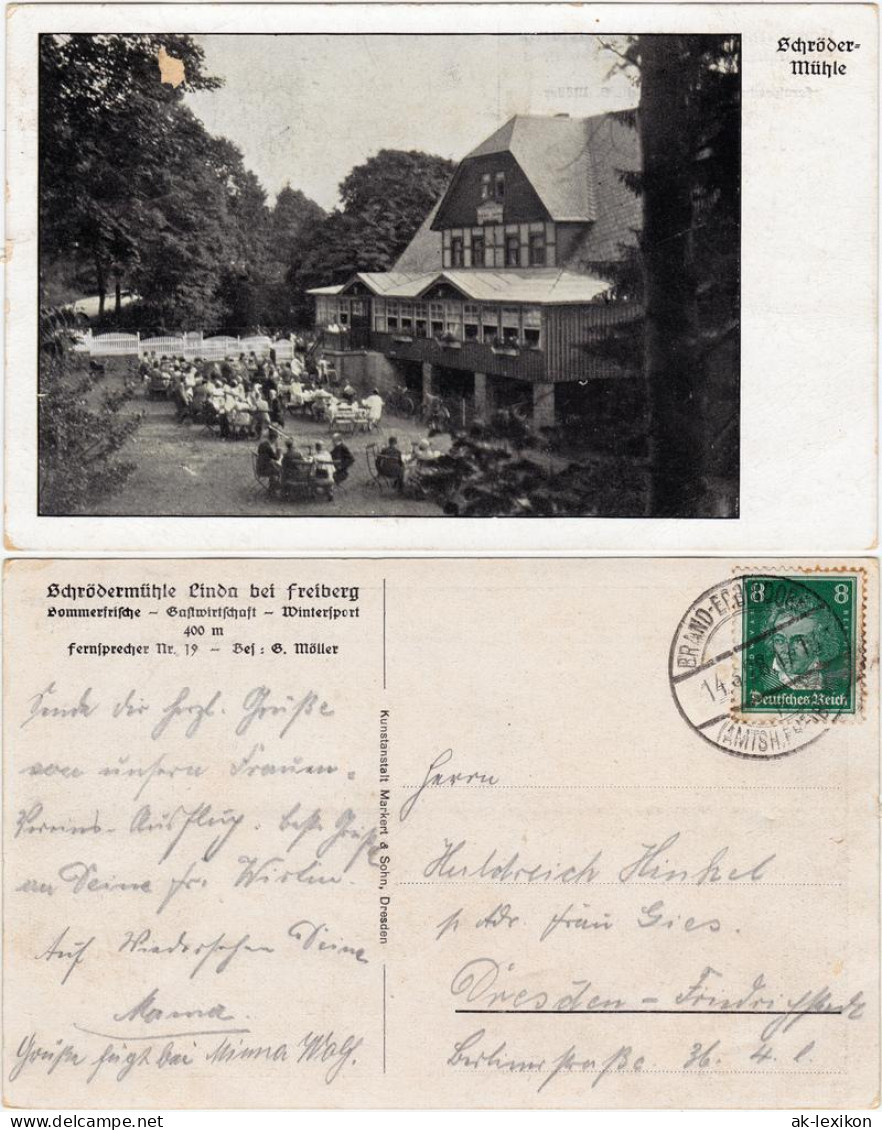 Schröder=
Mühle
Schrödermühle Linda bei Freiberg
Sommerfrische – Gastwirtschaft – Wintersport
400 m
Fernsprecher Nr. 19 – Bes: G. Möller
Sende dir herzl. Grüße
von unsern Frauen-
Vereins-Ausflug. beste Grüße
an Deine Fr. Wirtin.
Auf Wiedersehen Deine
Mama.
Grüße fügt bei Minna Wolf.
Kunstanstalt Markert & Sohn, Dresden
BRAND-ERBISDORF
14
(AMTSH.
8 8
Deutsches Reich
Herrn
Huldreich Hinkel
p. Adr. Frau Gies.
Dresden - Friedrichstadt
Berlinerstraße 36. 4. l.
ak-lexikon